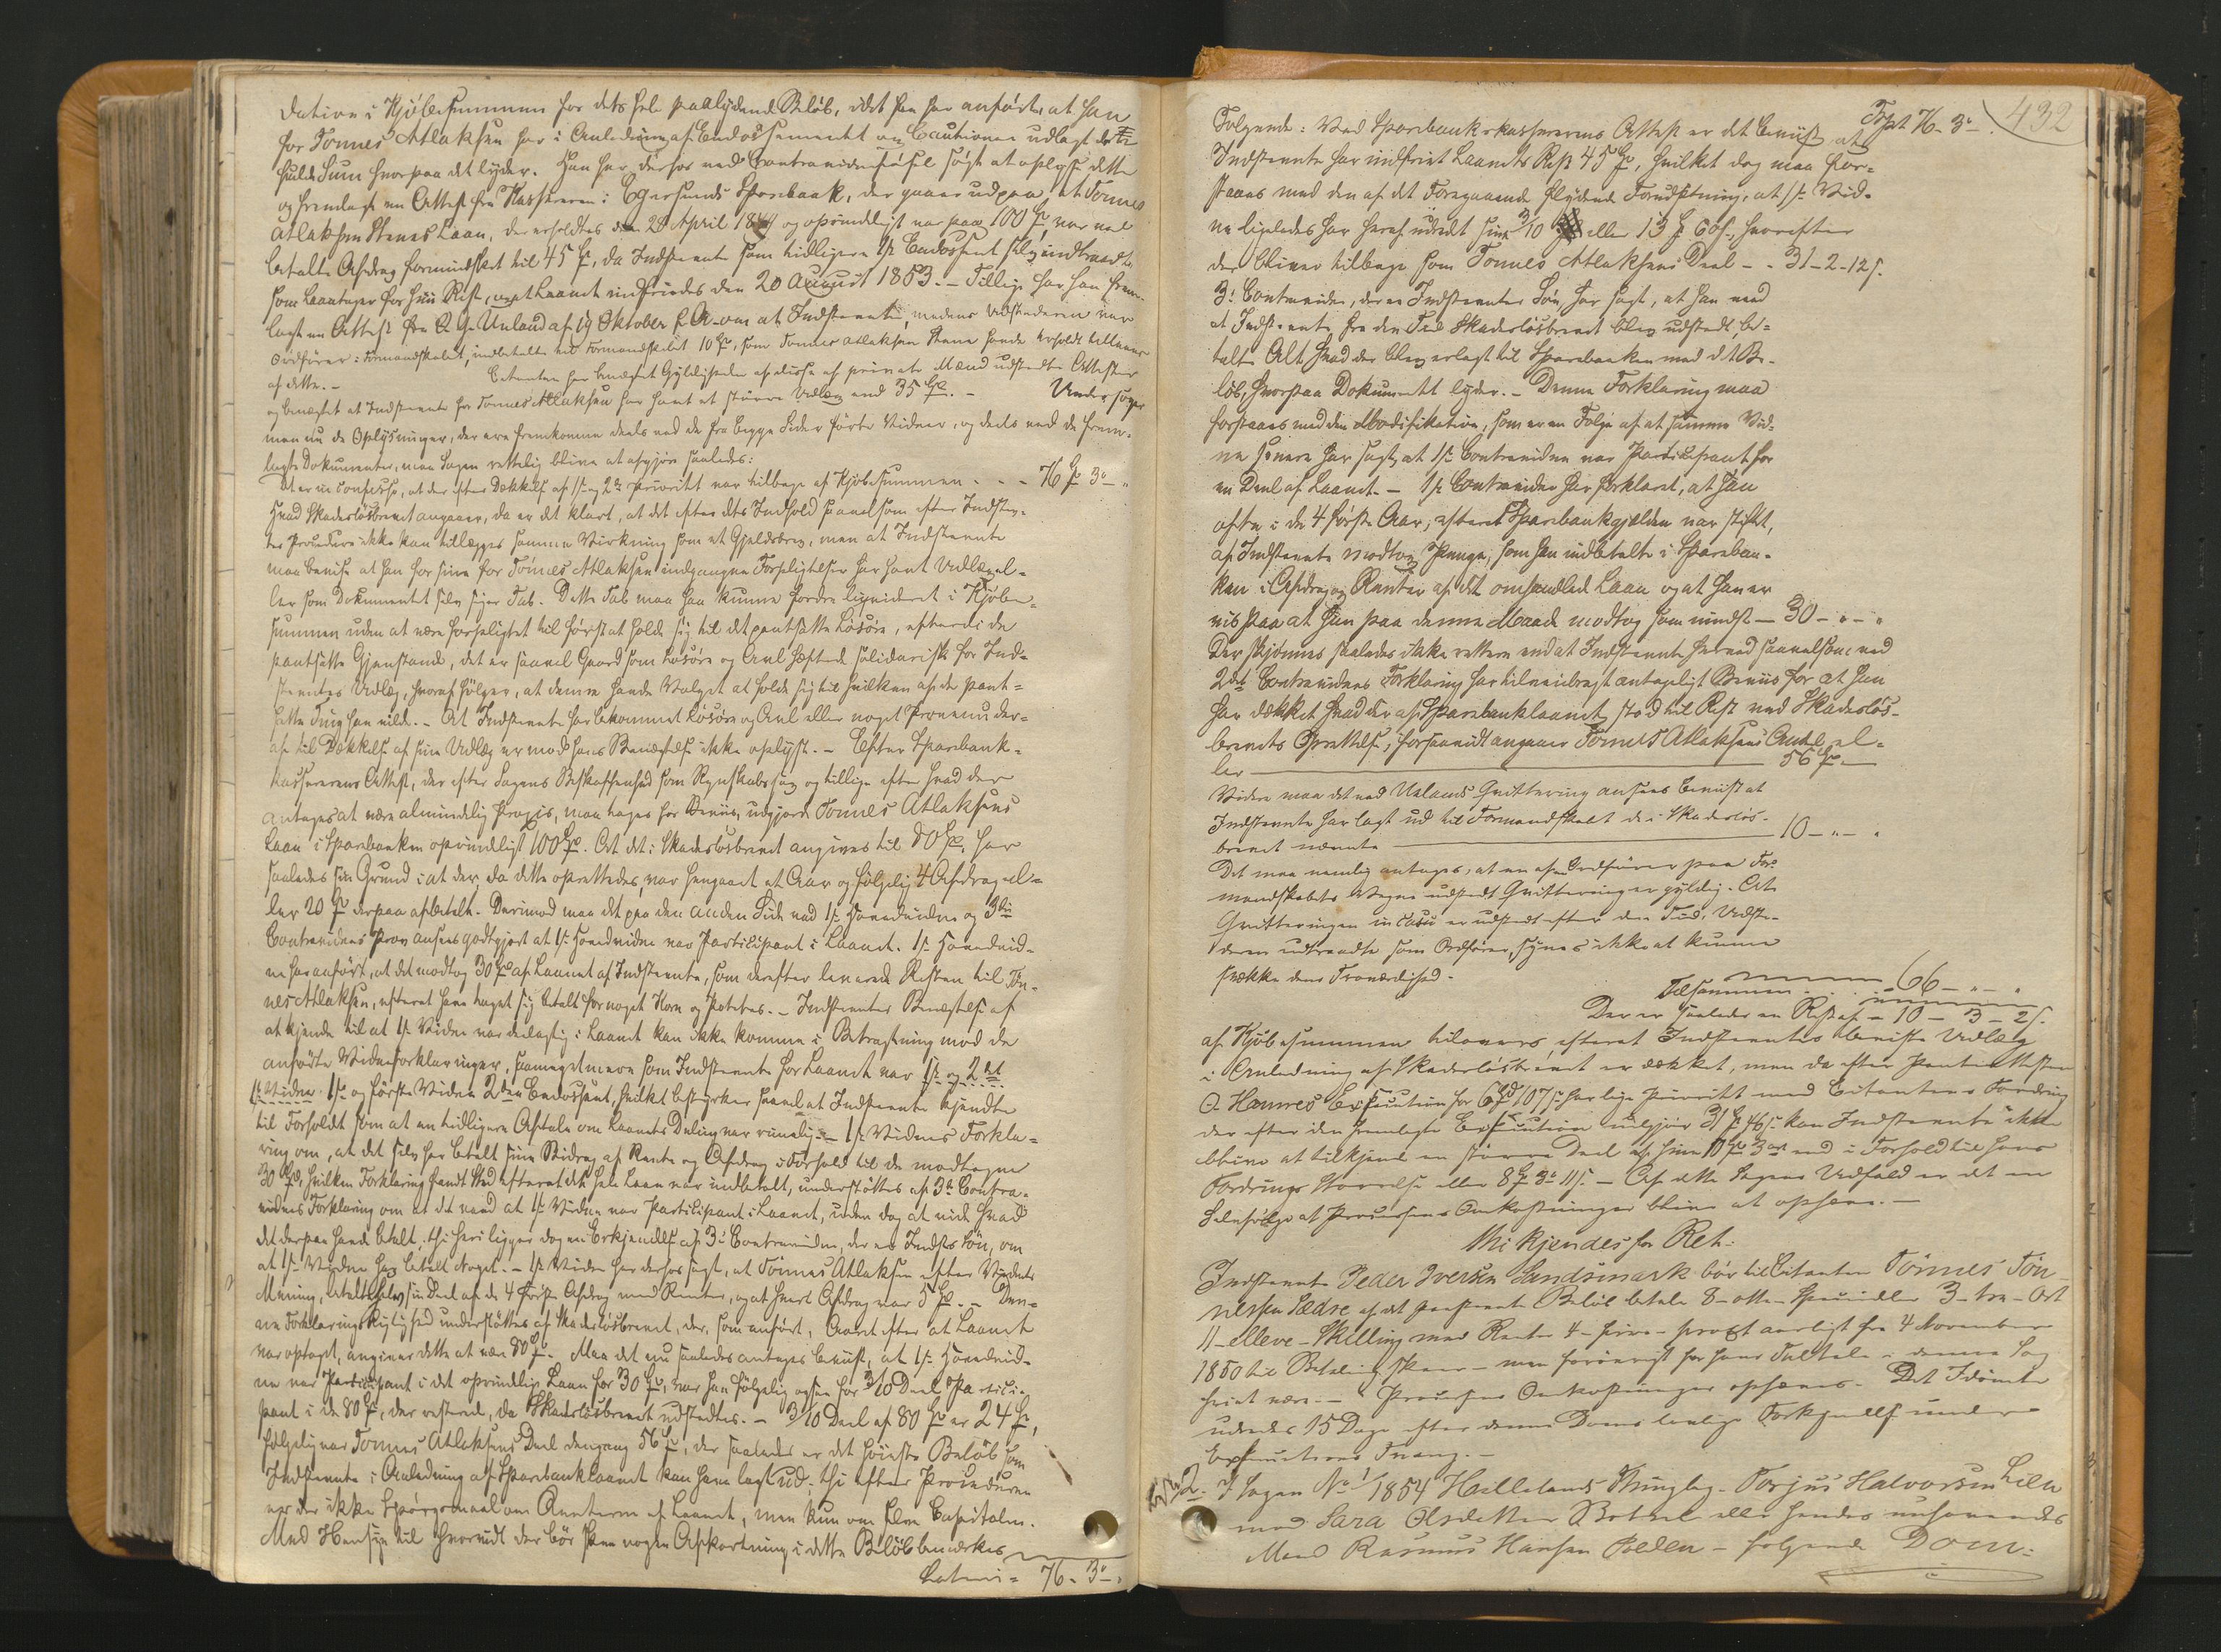 dation i Kjöbesummen for dets hele paalydende Belöb, idet han har anfört, at han
for Tønnes Atlaksen har i Anledning af Endossementet og Cautionen udlagt den
fulde Sum hvorpaa det lyder. Han har derhos ved Contravidneförsel sögt at oplyse dette
og fremlagt en Attest fra Kassereren i Egersunds Sparebank, der gaaer ud paa, at Tönnes
Atlaksen Stenes Laan, der erholdtes den 28 April 18 og oprindeligt var paa 100 Spd, var ved
betalte Afdrag formindsket til 45 Spd, da Indstevnte som tidligere 1ste Endossent selv indtraadte
som Laantager for hiin Rest, og at Laanet indfriedes den 20 August 1853. – Tillige har han frem-
lagt en Attest fra A. G. Ueland af 19 Oktober f. A. om at Indstevnte, medens Udstederen var
Ordförer i Formandskabet, indbetalte til Formandskabet 10 Spd, som Tönnes Atlaksen Stene havde erholdt tillaans
af dette. – Citanten har benægtet Gyldigheden af disse af private Mænd udstedte Attester
og benægtet at Indstevnte for Tönnes Atlaksen har havt et större Udlæg end 35 Spd. – Undersöger
man nu de Oplysninger, der ere fremkomne deels ved de fra begge Sider förte Vidner, og deels ved de frem-
lagte Dokumenter, maa Sagen rettelig blive at afgjöre saaledes:
Det er in confesso, at der efter Dækkelse af 1ste og 2den Prioritet var tilbage af Kjöbesummen - - - 76 Spd 3 " "
Hvad Skadeslösbrevet angaaer, da er det klart, at det efter dets Indhold saavelsom efter Indstevn-
tes Procedure ikke kan tillægges samme Virkning som et Gjeldsbrev, men at Indstevnte
maa bevise at han for sine for Tönnes Atlaksen indgangne Forpligtelser har havt Udlæg el-
ler som Dokumentet selv siger Tab. Dette Tab maa han kunne fordre liqvideret i Kjöbe-
summen uden at være forpligtet til först at holde sig til det pantsatte Lösöre, efterdi de
pantsatte Gjenstande, det er saavel Gaard som Lösöre og Avl heftede solidarisk for Ind-
stevntes Udlæg, hvoraf fölger, at denne havde Valget at holde sig til hvilken af de pant-
satte Ting han vilde. – At Indstevnte har bekommet Lösöre og Avl eller noget Provenu der-
af til Dækkelse af sine Udlæg er mod hans Benægtelse ikke oplyst. – Efter Sparebank-
kassererens Attest, der efter Sagens Beskaffenhed som Regnskabssag og tillige efter hvad der
antages at være almindelig Praxis, maa tages for Beviis, udgjorde Tönnes Atlaksens
Laan i Sparebanken oprindeligt 100 Spd. At det i Skadeslösbrevet angives til 80 Spd, har
saaledes sin Grund i at der, da dette oprettedes, var hengaaet et Aar og fölgelig 4 Afdrag el-
ler 20 Spd derpaa afbetalt. Derimod maa det paa den anden Side ved 1ste Hovedvidne og 3die
Contravidnes Prov ansees godtgjort at 1ste Hovedvidne var Participant i Laanet. 1ste Hovedvid-
ne har anfört, at det modtog 30 Spd af Laanet af Indstevnte, som derefter leverede Resten til Tön-
nes Atlaksen, efterat have taget sig betalt for noget Korn og Poteter. – Indstevntes Benægtelse af
at kjende til at 1ste Vidne var deelagtig i Laanet kan ikke komme i Betragtning mod de
anförte Vidneforklaringer, saameget mere som Indstevnte for Laanet var 1ste og 2det
1ste Vidne 1ste og förste Vidne 2den Endossent, hvilket bestyrker saavel at Indstevnte kjendte
til Forholdet som at en tidligere Aftale om Laanets Deling var rimelig. – 1ste Vidnes Forkla-
ring om, at det selv har betalt sine Bidrag af Rente og Afdrag i Forhold til de modtagne
30 Spd, hvilken Forklaring fandt Sted efterat det hele Laan var indbetalt, understöttes af 3die Contra-
vidnes Forklaring om at det veed at 1ste Vidne var Participant i Laanet, uden dog at vide hvad
det derpaa havde betalt, thi heri ligger dog en Erkjendelse af 3die Contravidne, der er Indsts Sön, om
at 1ste Vidne har betalt Noget. – 1ste Vidne har derhos sagt, at Tönnes Atlaksen efter Vidnets
Mening, betalte selv sin Deel af de 4 förste Afdrag med Renter, og at hvert Afdrag var 5 Spd. – Den-
ne Forklarings Rigtighed understöttes af Skadeslösbrevet, der, som anfört, Aaret efter at Laanet
var optaget, angiver dette at være 80 Spd. Maa det nu saaledes antages beviist, at 1ste Hovedvid-
ne var Participant i det oprindelige Laan for 30 Spd, var han fölgelig ogsaa for 3/10 Deel Partici-
pant i de 80 Spd, der resterede, da Skadeslösbrevet udstedtes. – 3/10 Deel af 80 Spd er 24 Spd,
fölgelig var Tönnes Atlaksens Deel dengang 56 Spd, der saaledes er det höieste Belöb som
Indstevnte i Anledning af Sparebanklaanet kan have lagt ud; thi efter Proceduren
er der ikke Spörgsmaal om Renterne af Laanet, men kun om selve Capitalen.
Med Hensyn til hvorvidt der bör skee nogen Afkortning i dette Belöb bemærkes
Latus = 76 - 3 - "
432
Trspt 76 - 3 -
Fölgende: Ved Sparebankkassererens Attest er det beviist at
Indstevnte har indfriet Laanets Rest 45 Spd, hvilket dog maa for-
staaes med den af det Foregaaende flydende Forudsetning, at 1ste Vid-
ne ligeledes har heraf udredet sine 3/10 eller 13 Spd 60 s, hvorefter
der bliver tilbage som Tönnes Atlaksens Deel - - 31 - 2 - 12 s.
3die Contravidne, der er Indstevntes Sön, har sagt, at han veed
at Indstevnte fra den Tid Skadeslösbrevet blev udstedt, be-
talte Alt hvad der blev erlagt til Sparebanken med det Be-
löb, hvorpaa Dokumentet lyder. – Denne Forklaring maa
forstaaes med den Modifikation, som er en Fölge af at samme Vid-
ne senere har sagt, at 1ste Contravidne var Participant for
en Deel af Laanet. – 1ste Contravidne har forklaret, at han
ofte i de 4 förste Aar, efterat Sparebankgjelden var stiftet,
af Indstevnte modtog Penge, som han indbetalte i Spareban-
ken i Afdrag og Renter af det omhandlede Laan og at han er
vis paa at han paa denne Maade modtog som mindst – 30 - " - "
Der skjönnes saaledes ikke rettere end at Indstevnte herved saavelsom ved
2det Contravidnes Forklaring har tilveiebragt antageligt Beviis for at han
har dækket hvad der af Sparebanklaanet stod til Rest ved Skadeslös-
brevets Oprettelse, forsaavidt angaaer Tönnes Atlaksens Andel, el-
ler — 56 Spd —
Videre maa det ved Uelands Qvittering ansees beviist at
Indstevnte har lagt ud til Formandskabet de i Skadeslös-
brevet nævnte — 10 - " - "
Det maa nemlig antages, at en af en Ordförer paa For-
mandskabets Vegne udstedt Qvittering er gyldig. At
Qvitteringen in casu er udstedt efter den Tid, Udste-
deren udtraadte som Ordförer, synes ikke at kunne
svække dens Troværdighed.
Tilsammen - - - 66 - " - "
Der er saaledes en Rest af - 10 - 3 - 2 s.
af Kjöbesummen tilovers, efterat Indstevntes beviste Udlæg
i Anledning af Skadeslösbrevet er dækket, men da efter Panteattesten
O. Hannes Execution for 6 Spd 107 s har lige Prioritet med Citantens Fordring
der efter den fremlagte Execution udgjör 31 Spd 46 s kan Indstevnte ikke
blive at tilkjende en större Deel af hine 10 Spd 3 ort end i Forhold til hans
Fordrings Störrelse eller 8 Spd 3 ort 11 s. – Af dette Sagens Udfald er det en
Selvfölge at Processens Omkostninger blive at ophæve. –
Thi kjendes for Ret:
Indstevnte Peder Iversen Sandsmark bör til Citanten Tönnes Tön-
nessen Sædre af det paastevnte Belöb betale 8 - otte - Speciedaler 3 - tre - Ort
11 - elleve - Skilling med Renter 4 - fire - procent aarligt fra 4 November
1850 til Betaling skeer – men forövrigt for hans Tiltale i denne Sag
friet være. – Processens Omkostninger ophæves. – Det Idömte
udredes 15 Dage efter denne Doms lovlige Forkyndelse under
Executions Tvang. –
2. I Sagen No 1/1854 Hellelands Thinglag – Torjus Halvorsen Lilen
mod Sara Olsdatter Botnel eller hendes nuhavende
Mand Rasmus Hansen Polden – fölgende Dom: